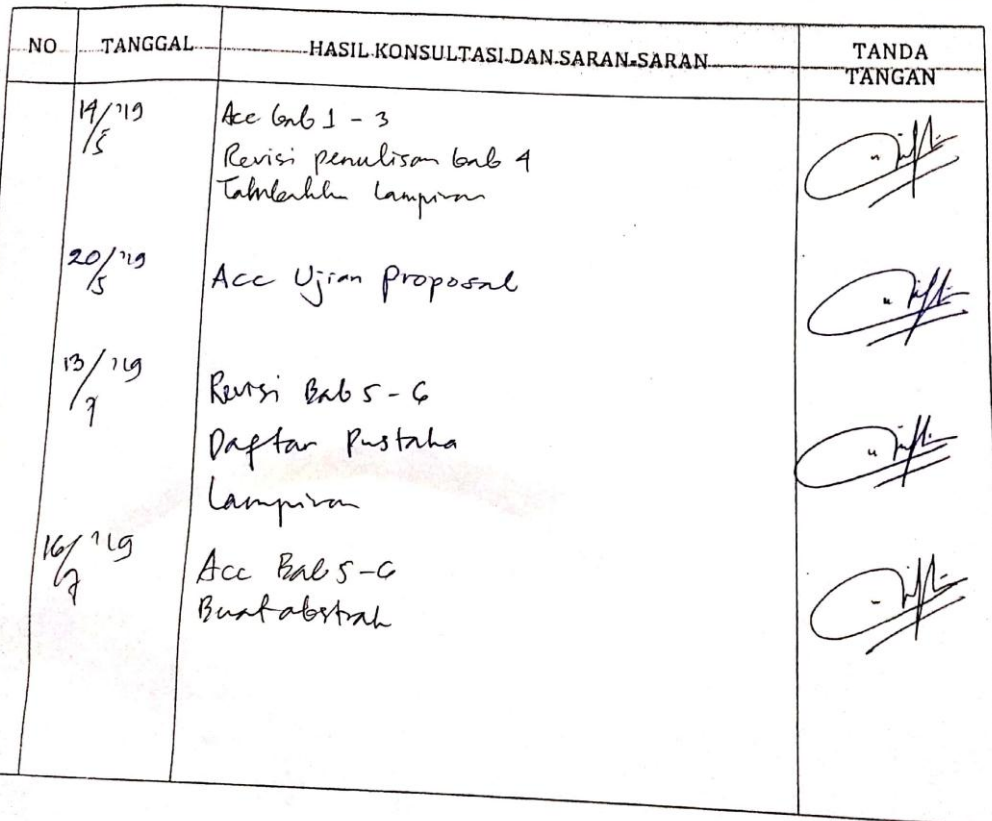 NO TANGGAL HASIL KONSULTASI DAN SARAN-SARAN TANDA TANGAN
14/5 '19 Acc bab 1 - 3
Revisi penulisan bab 4
Lampiran
20/5 '19 Acc Ujian Proposal
13/7 '19 Revisi Bab 5 - 6
Daftar Pustaka
Lampiran
16/7 '19 Acc Bab 5 - 6
Buat abstrak